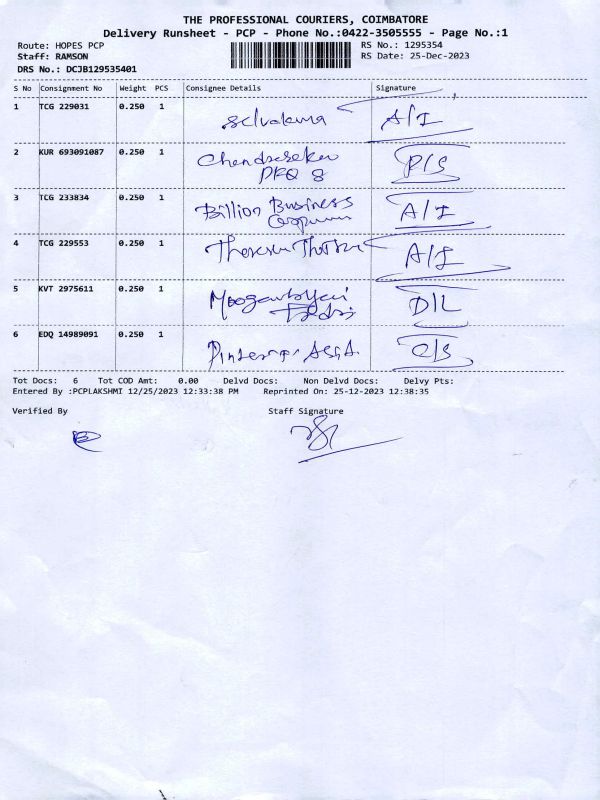 THE PROFESSIONAL COURIERS, COIMBATORE
Delivery Runsheet - PCP - Phone No.:0422-3505555 - Page No.:1
Route: HOPES PCP RS No.: 1295354
Staff: RAMSON RS Date: 25-Dec-2023
DRS No.: DCJB129535401
S No Consignment No Weight PCS Consignee Details Signature
1 TCG 229031 0.250 1
Selvakuma A/I
2 KUR 693091087 0.250 1 Chandrasekar P/S
8
3 TCG 233834 0.250 1 Billion Business A/I
4 TCG 229553 0.250 1 A/I
5 KVT 2975611 0.250 1 D/L
6 EDQ 14989091 0.250 1 C/S
Tot Docs: 6 Tot COD Amt: 0.00 Delvd Docs: Non Delvd Docs: Delvy Pts:
Entered By :PCPLAKSHMI 12/25/2023 12:33:38 PM Reprinted On: 25-12-2023 12:38:35
Verified By Staff Signature